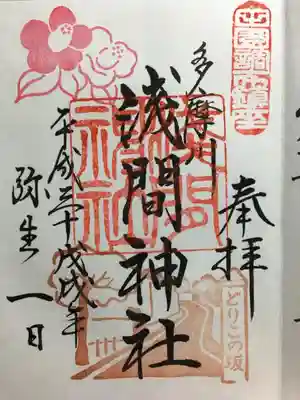 田園調布鎮座
奉拝
どりこの坂
多摩川
浅間神社
平成三十戊戌年
弥生一日